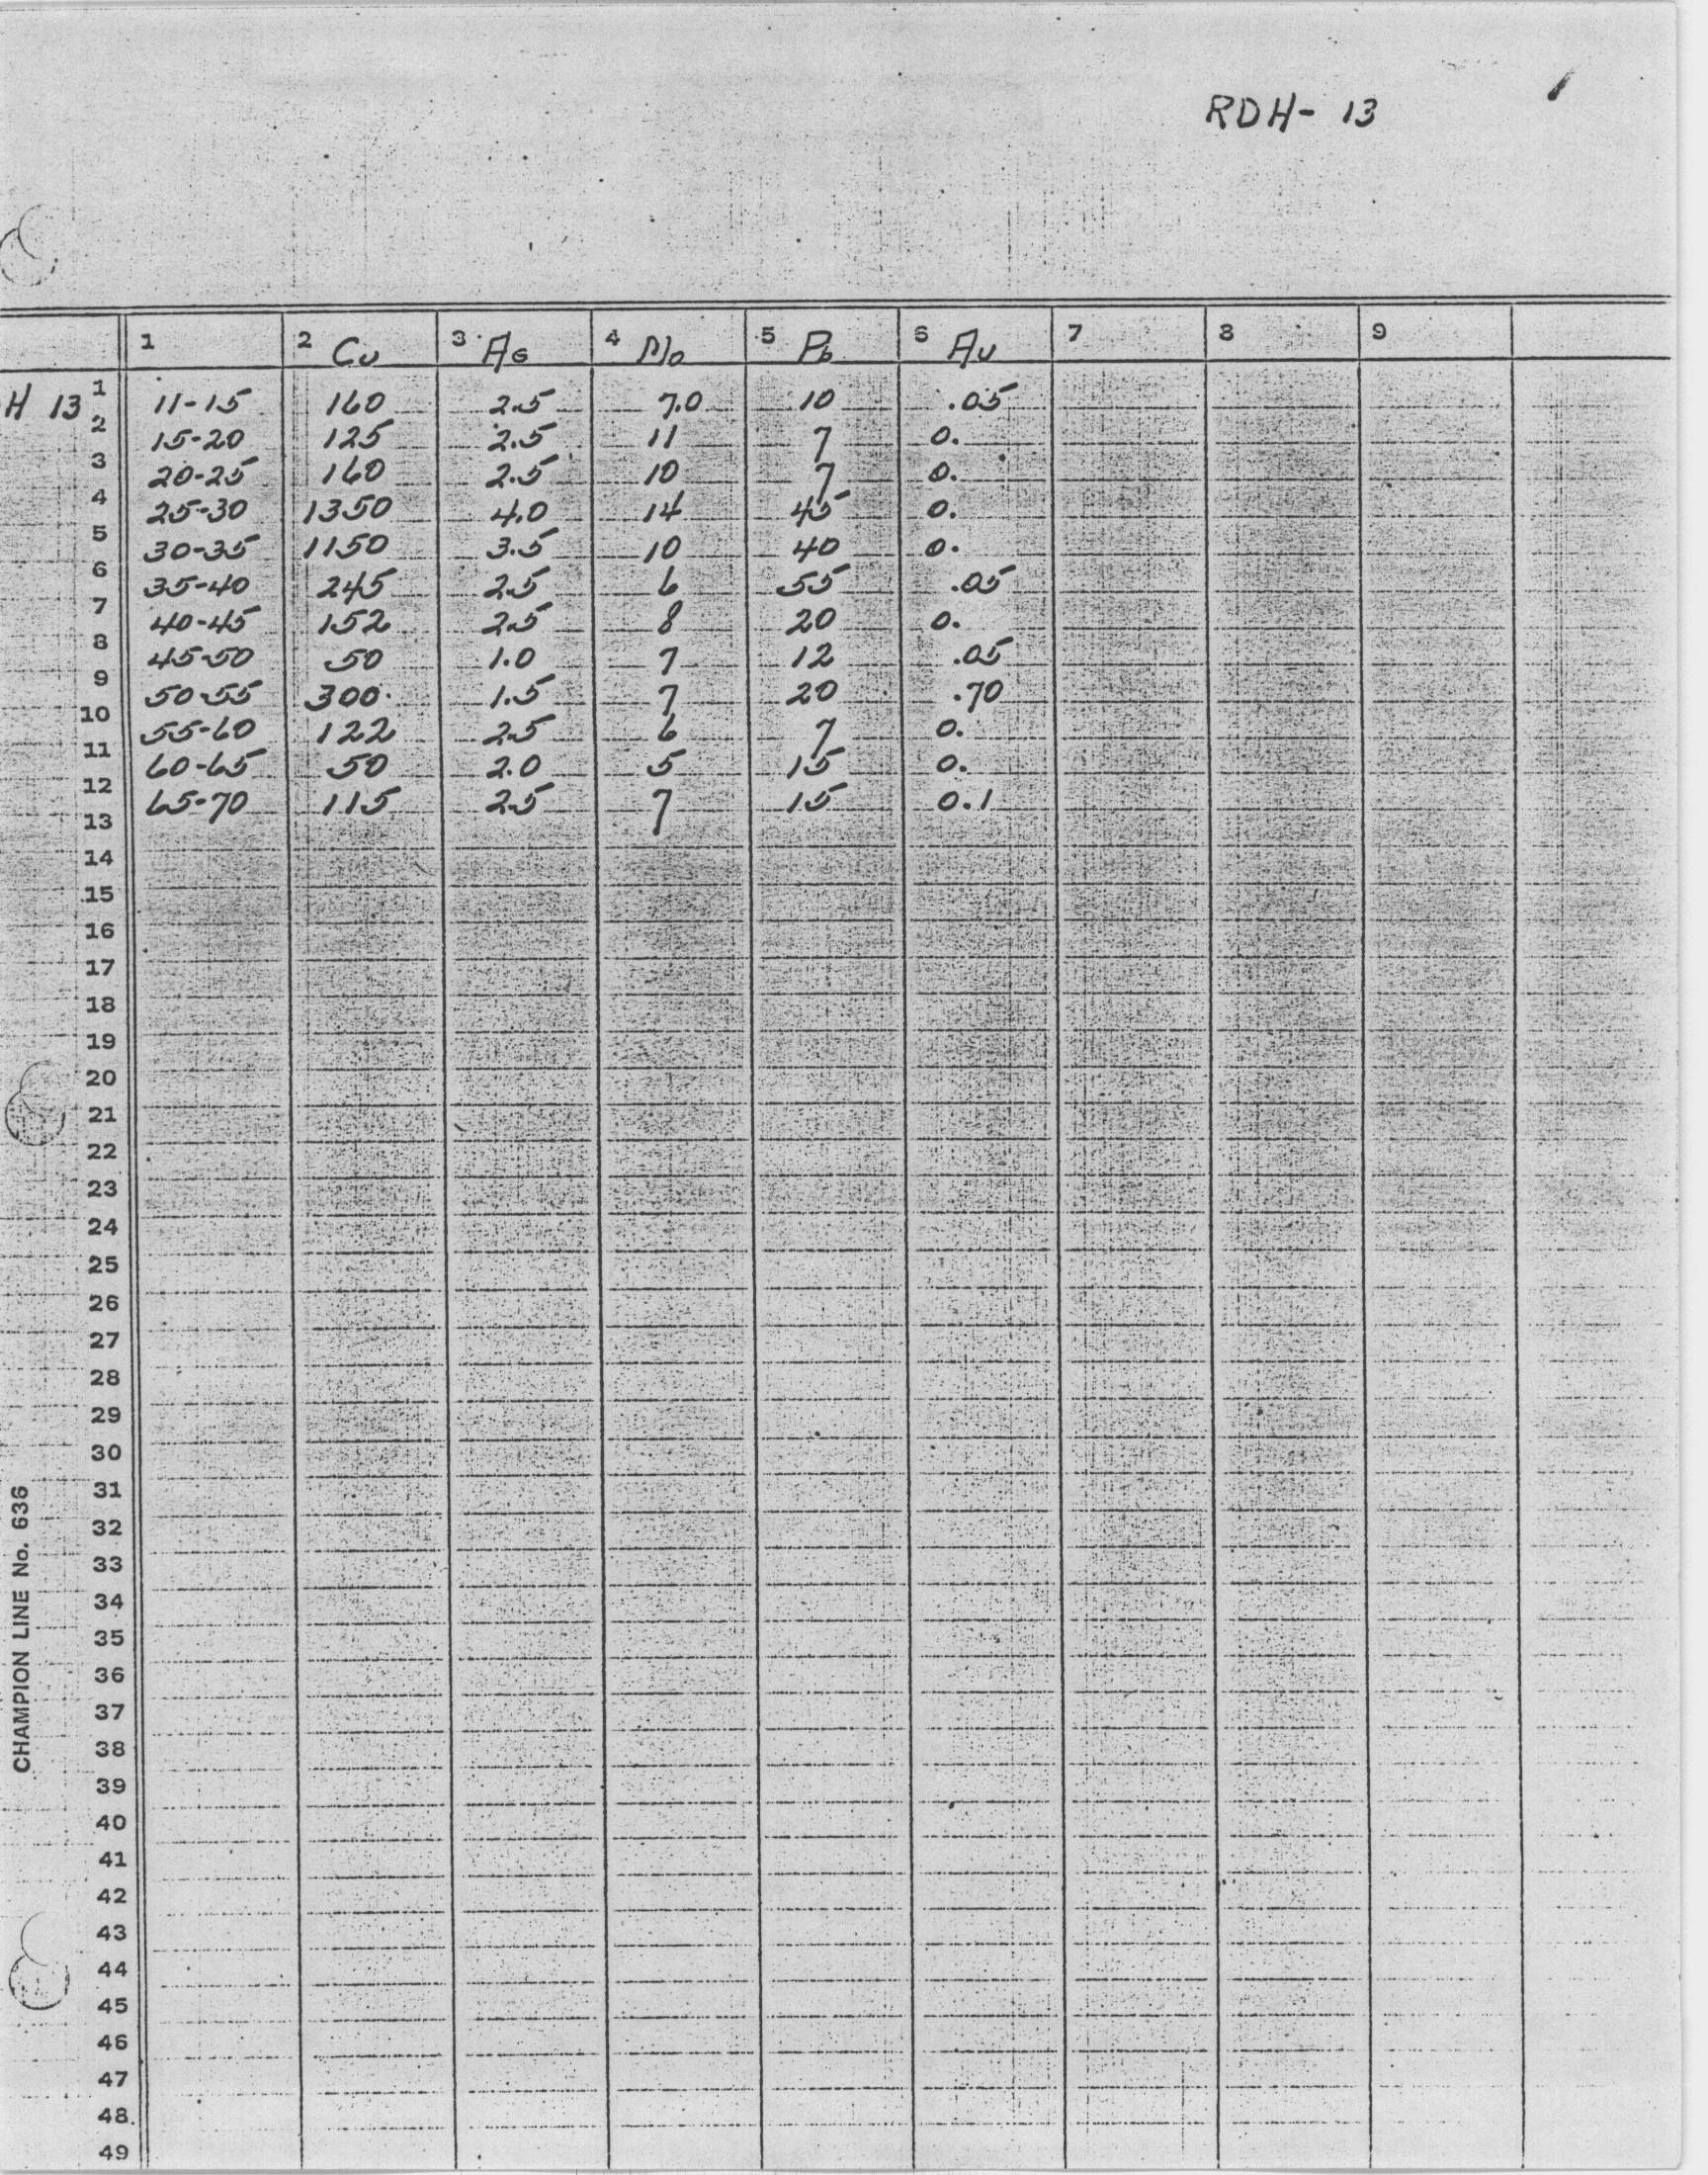 RDH- 13
1 2 Cu 3 Ag 4 Mo 5 Pb 6 Au 7 8 9
H 13 1 11-15 160 2.5 7.0 10 .05
2 15-20 125 2.5 11 7 0.
3 20-25 160 2.5 10 7 0.
4 25-30 1350 4.0 14 45 0.
5 30-35 1150 3.5 10 40 0.
6 35-40 245 2.5 6 55 .05
7 40-45 152 2.5 8 20 0.
8 45-50 50 1.0 7 12 .05
9 50-55 300 1.5 7 20 .70
10 55-60 122 2.5 6 7 0.
11 60-65 50 2.0 5 15 0.
12 65-70 115 2.5 7 15 0.1
13
14
15
16
17
18
19
20
21
22
23
24
25
26
27
28
29
30
31
32
33
34
35
36
37
38
39
40
41
42
43
44
45
46
47
48
49
CHAMPION LINE No. 636